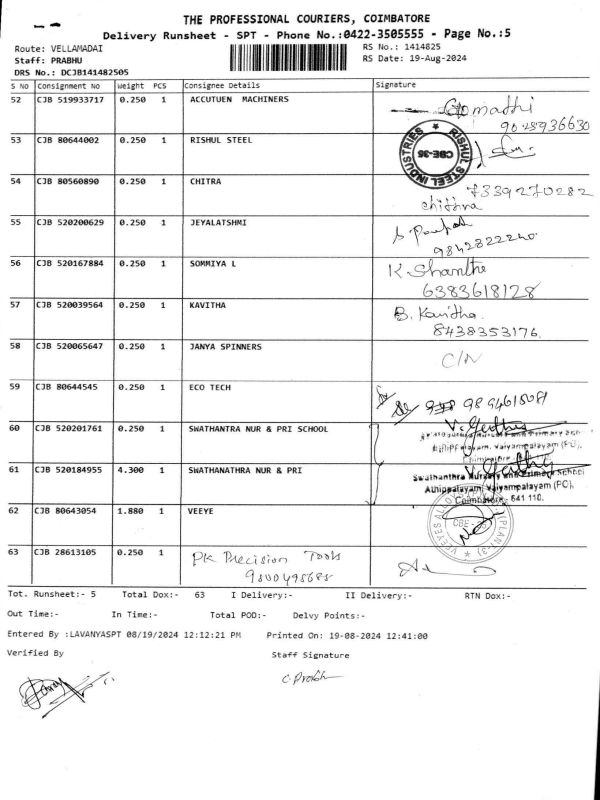 THE PROFESSIONAL COURIERS, COIMBATORE
Delivery Runsheet - SPT - Phone No.:0422-3505555 - Page No.:5
Route: VELLAMADAI RS No.: 1414825
Staff: PRABHU RS Date: 19-Aug-2024
DRS No.: DCJB141482505
S No Consignment No Weight PCS Consignee Details Signature
52 CJB 519933717 0.250 1 ACCUTUEN MACHINERS Gomathi
9028936630
53 CJB 80644002 0.250 1 RISHUL STEEL RISHUL STEEL INDUSTRIES CBE-35
54 CJB 80560890 0.250 1 CHITRA 7339270282
chithra
55 CJB 520200629 0.250 1 JEYALATSHMI
9842822240
56 CJB 520167884 0.250 1 SOMMIYA L K Shanthi
6383618128
57 CJB 520039564 0.250 1 KAVITHA B. Kavitha
8438353176
58 CJB 520065647 0.250 1 JANYA SPINNERS C/N
59 CJB 80644545 0.250 1 ECO TECH
60 CJB 520201761 0.250 1 SWATHANTRA NUR & PRI SCHOOL
61 CJB 520184955 4.300 1 SWATHANATHRA NUR & PRI Swathanthra Nursery and Primary School
Athipalayam, Vaiyampalayam (PO),
Coimbatore - 641 110.
62 CJB 80643054 1.880 1 VEEYE
63 CJB 28613105 0.250 1 PK Precision Tools
Tot. Runsheet:- 5 Total Dox:- 63 I Delivery:- II Delivery:- RTN Dox:-
Out Time:- In Time:- Total POD:- Delvy Points:-
Entered By :LAVANYASPT 08/19/2024 12:12:21 PM Printed On: 19-08-2024 12:41:00
Verified By Staff Signature